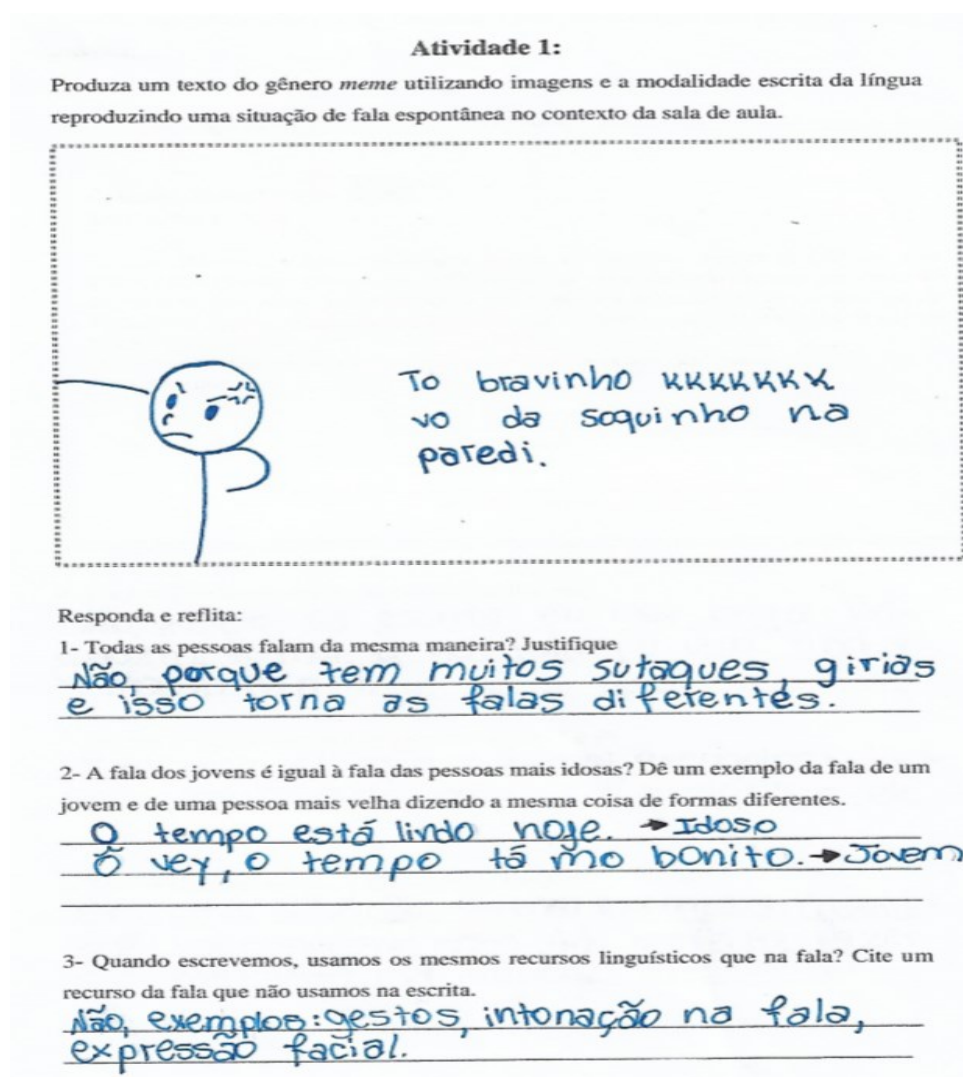 Atividade 1:
Produza um texto do gênero meme utilizando imagens e a modalidade escrita da língua
reproduzindo uma situação de fala espontânea no contexto da sala de aula.
To bravinho KKKKKKK
vo da soquinho na
paredi.
Responda e reflita:
1- Todas as pessoas falam da mesma maneira? Justifique
Não, porque tem muitos sutaques, girias
e isso torna as falas diferentes.
2- A fala dos jovens é igual à fala das pessoas mais idosas? Dê um exemplo da fala de um
jovem e de uma pessoa mais velha dizendo a mesma coisa de formas diferentes.
O tempo está lindo hoje. → Idoso
Ô vey, o tempo tá mo bonito. → Jovem
3- Quando escrevemos, usamos os mesmos recursos linguísticos que na fala? Cite um
recurso da fala que não usamos na escrita.
Não, exemplos: gestos, intonação na fala,
expressão facial.